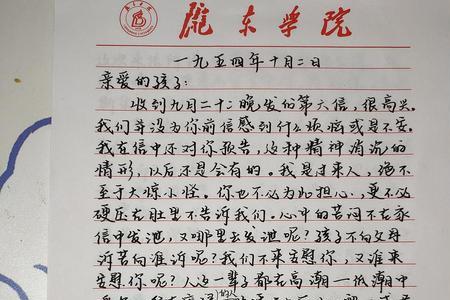 陇东学院
一九五四年十月二日
亲爱的孩子:
收到九月二十二晚发的第六信,很高兴。
我们并没为你前信感到什么烦恼或是不安。
我在信中还对你预告,这种精神消沉的
情形,以后还是会有的。我是过来人,决不
至于大惊小怪。你也不必为此担心,更不必
硬压在肚里不告诉我们。心中的苦闷不在家
信中发泄,又哪里去发泄呢?孩子不向父母
诉苦向谁诉呢?我们不来安慰你,又谁来
安慰你呢?人这一辈子都在高潮—低潮中
的人